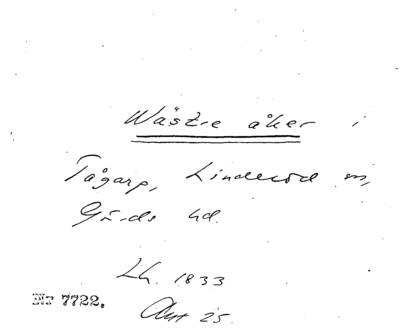 Wästre åker i
Tågarp, Linderöd sn,
Gärds hd.
Lh. 1833
Nr 7722.
Akt 25.